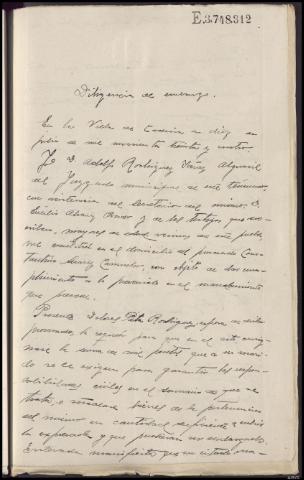 E.3.748.312
Diligencia de embargo.
En la Villa de a diez de
julio de mil novecientos treinta y cuatro.
Yo D. Adolfo Rodríguez Yáñez Alguacil
del Juzgado municipal de este término,
con asistencia del Secretario del mismo, D.
y de los testigos que sus-
criben, mayores de edad vecinos de este pueblo,
me constituí en el domicilio del procesado Cons-
tantino Suárez con objeto de dar cum-
plimiento a lo prevenido en el mandamiento
que precede.
Presente Dolores Rodríguez, esposa de dicho
procesado, la requerí para que en el acto consig-
nase la suma de mil pesetas que a su mari-
do se le exigen para garantir las respon-
sabilidades civiles en el sumario de que se
trata, o señalase bienes de la pertenencia
del mismo en cantidad suficiente a cubrir
la expresada y que pudieran ser embargados.
Enterada manifiesta que su citado ma-